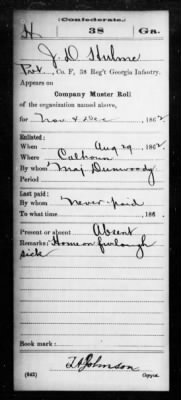 Confederate.
H 38 Ga.
J D Hulme
Pvt, Co. F, 38 Reg't Georgia Infantry.
Appears on
Company Muster Roll
of the organization named above,
for Nov & Dec, 1862
Enlisted:
When Aug 29, 1862
Where Calhoun
By whom Maj Dunwoody
Period
Last paid:
By whom Never paid
To what time , 186 .
Present or absent Absent
Remarks: Home on furlough
sick
Book mark:
(642) Copyist.